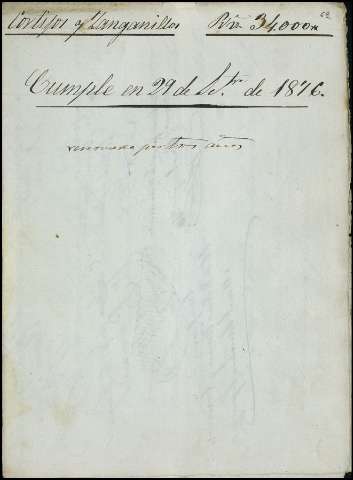 Cortijos y Zanganillos Rta. 34.000 rs 62
Cumple en 29 de Se.tre de 1876.
renovada por tres años